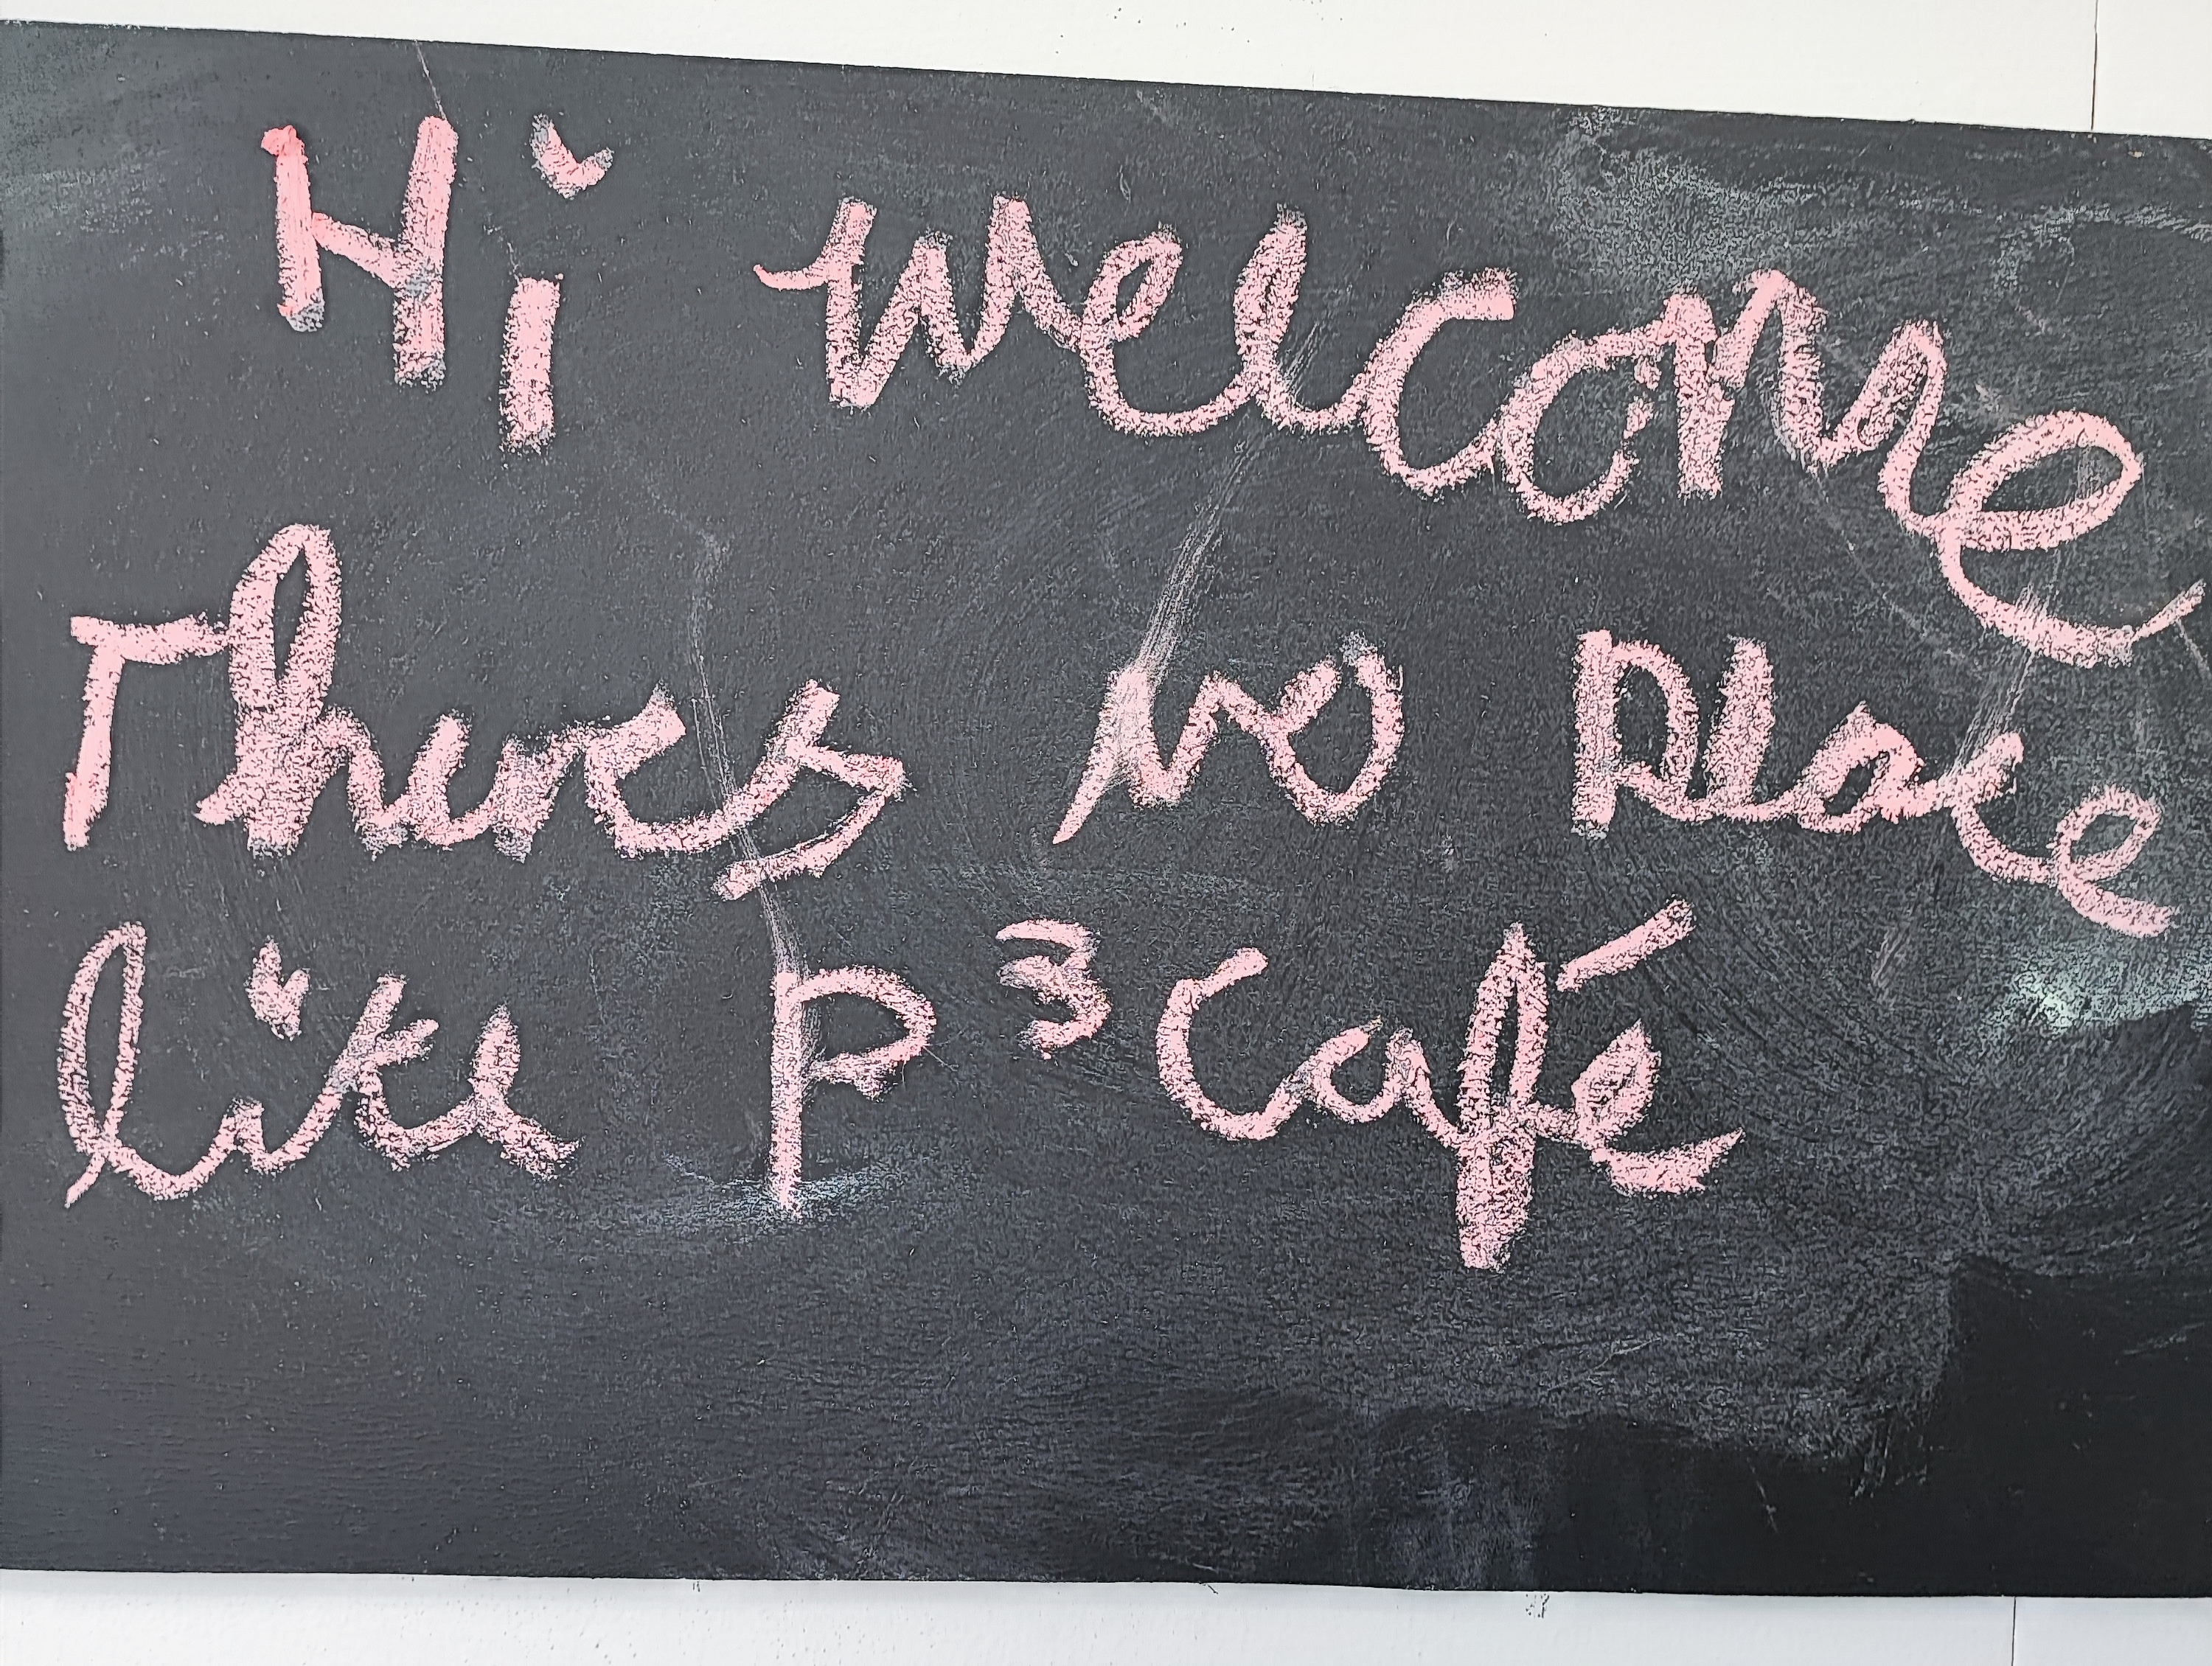 Hi welcome
Theres no place
like P³ Café